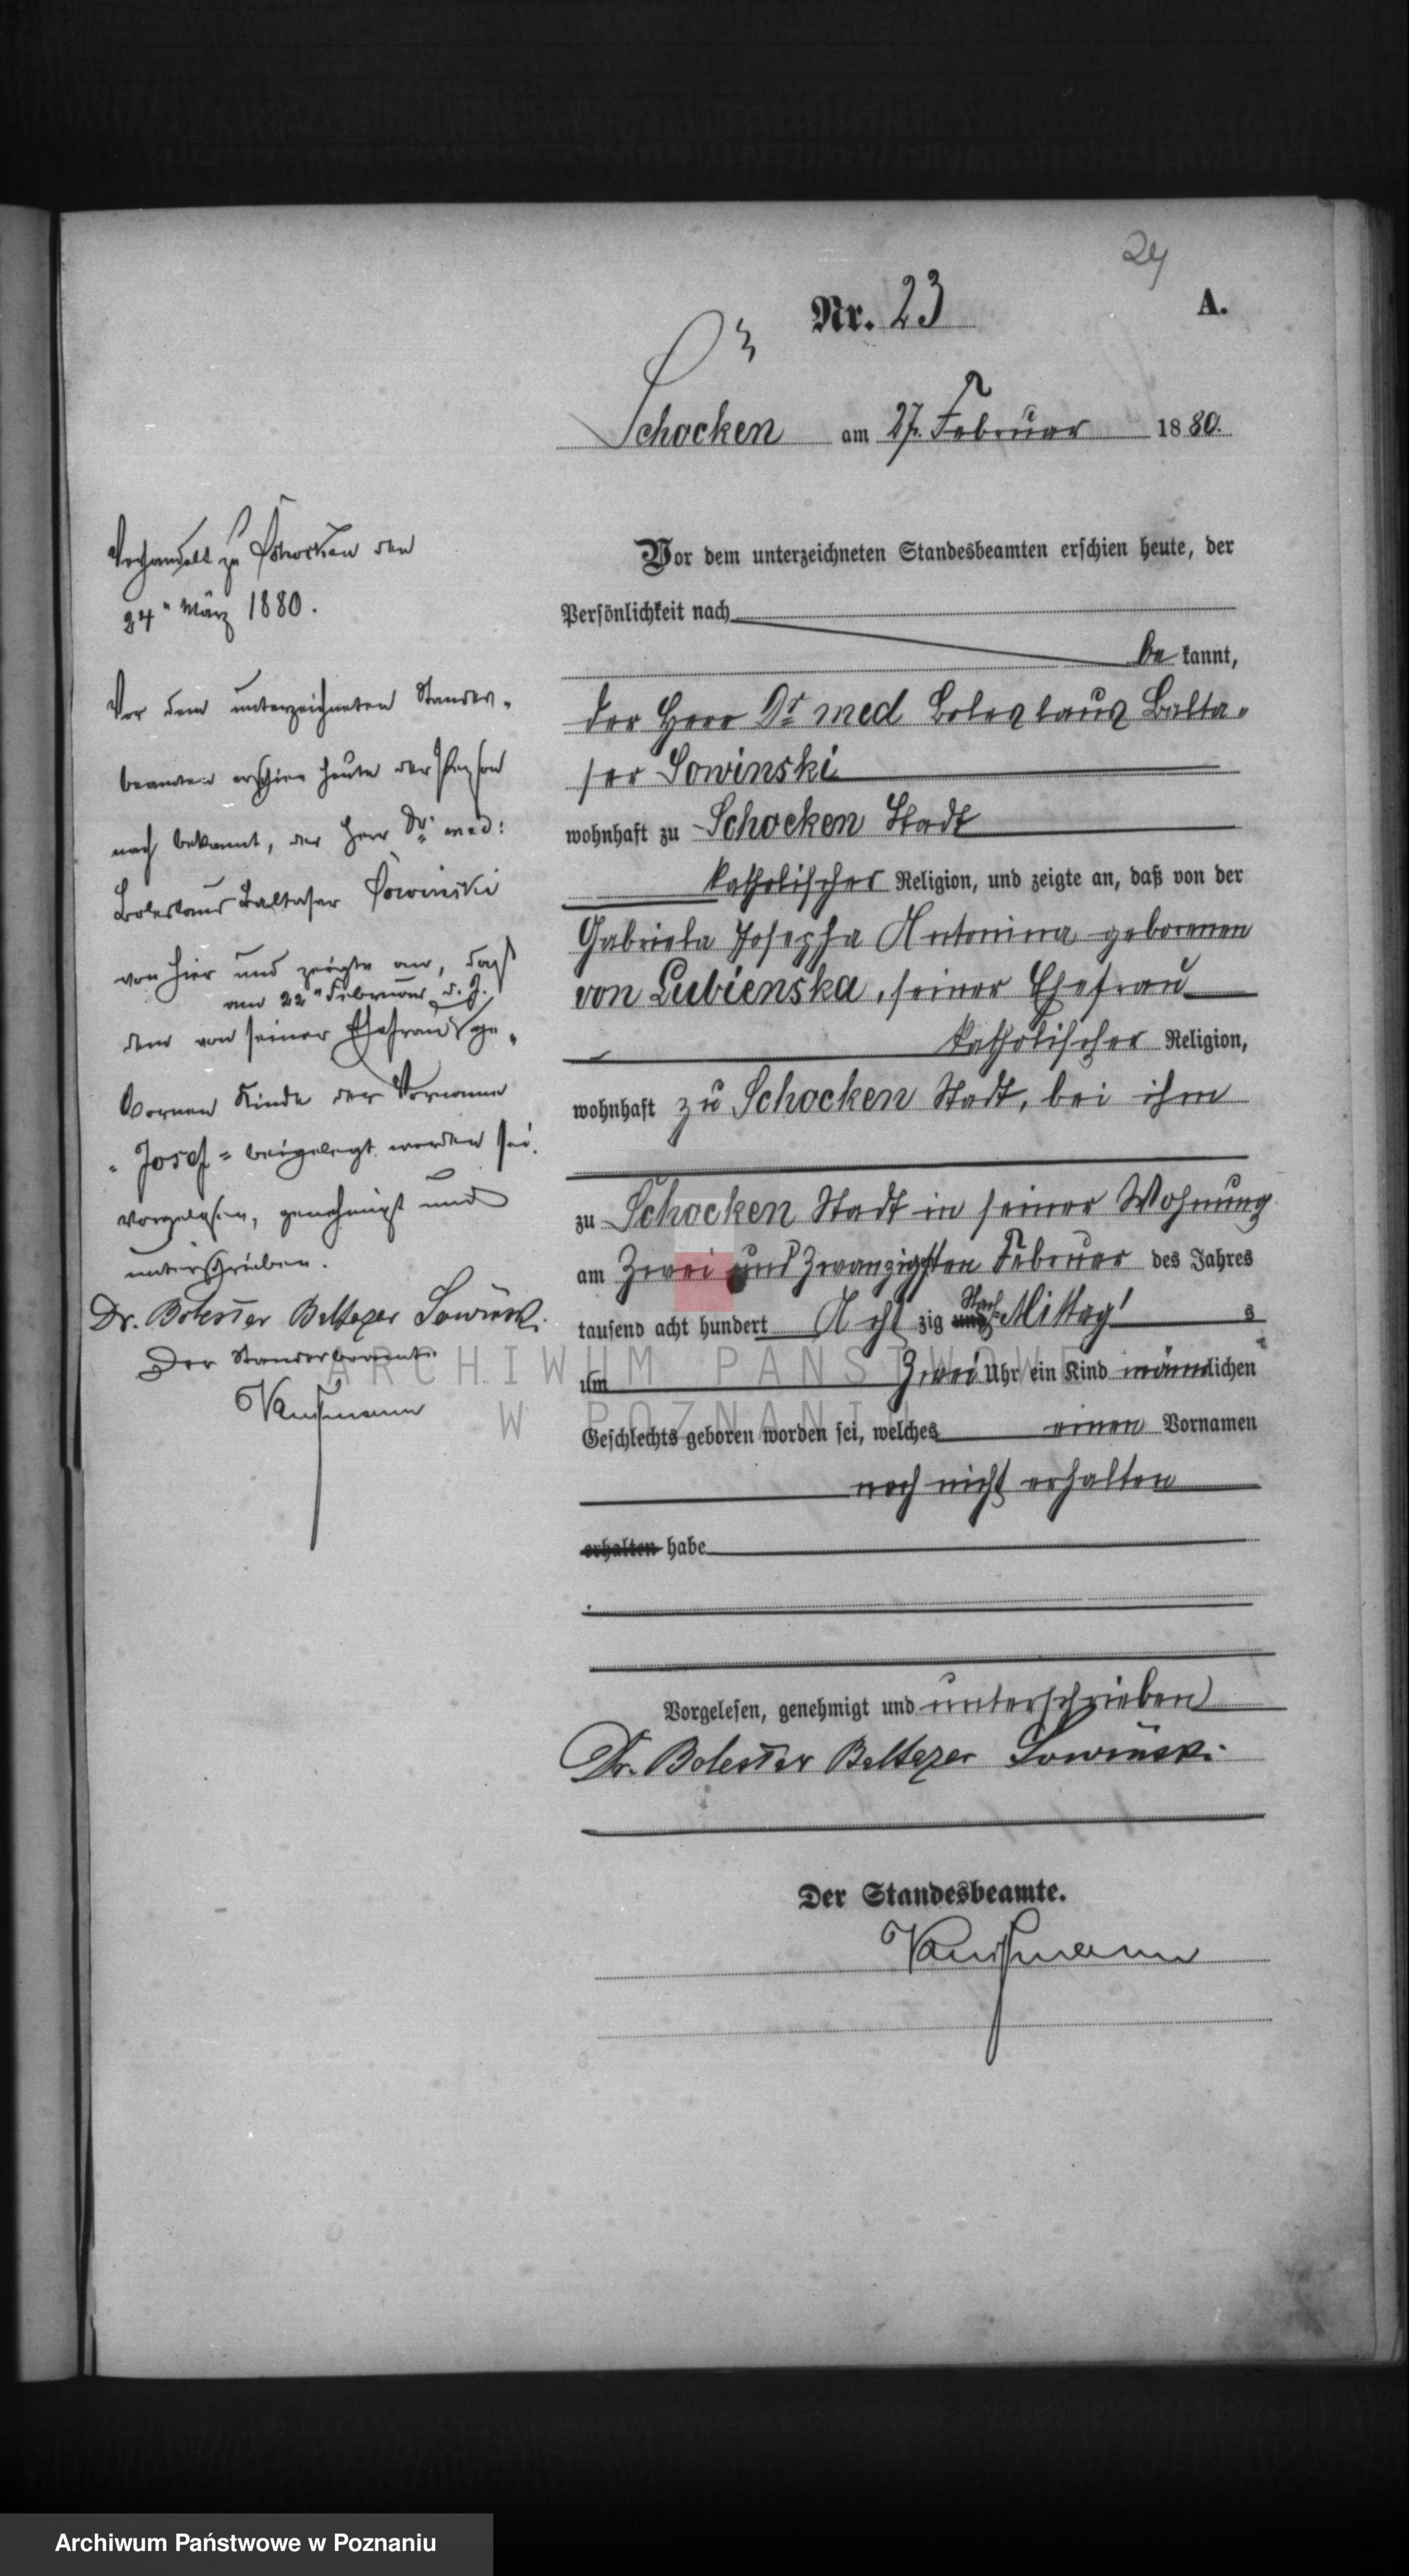 24
Nr. 23
A.
Schocken am 27. Februar 1880.
Verhandelt zu Schocken den
24ten März 1880.
Vor dem unterzeichneten Standes-
beamten erschien heute der Person
nach bekannt, der Herr Dr. med:
Boleslaus Baltaser Sowinski
von hier und zeigte an, daß
am 22ten Februar d. J.
dem von seiner Ehefrau ge-
bornen Kinde der Vorname
"Josef" beigelegt worden sei.
vorgelesen, genehmigt und
unterschrieben.
Dr. Bolesław Baltazar Sowiński.
Der Standesbeamte
Kaufmann
Vor dem unterzeichneten Standesbeamten erschien heute, der
Persönlichkeit nach
be kannt,
der Herr Dr med Boleslaus Balta-
ser Sowinski
wohnhaft zu Schocken Stadt
katholischer Religion, und zeigte an, daß von der
Gabriela Josepha Antonina geborenen
von Lubienska, seiner Ehefrau
katholischer Religion,
wohnhaft zu Schocken Stadt, bei ihm
zu Schocken Stadt in seiner Wohnung
am Zwei und Zwanzigsten Februar des Jahres
tausend acht hundert Acht zig und Nach Mittag s
um Zwei Uhr ein Kind männlichen
Geschlechts geboren worden sei, welches einen Vornamen
noch nicht erhalten
erhalten habe
Vorgelesen, genehmigt und unterschrieben
Dr. Bolesław Baltazar Sowiński.
Der Standesbeamte.
Kaufmann
ARCHIWUM PAŃSTWOWE
W POZNANIU
Archiwum Państwowe w Poznaniu